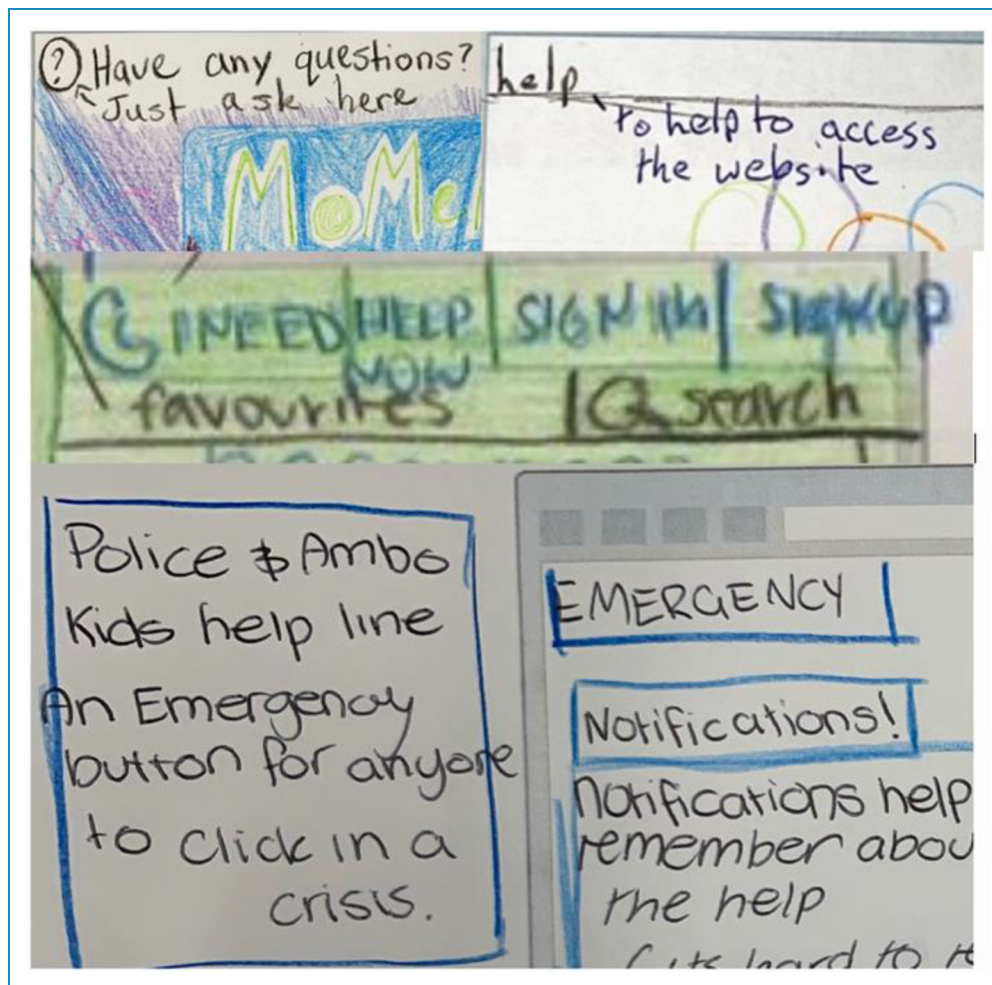 ? Have any questions?
Just ask here
MoMe
help
to help to access
the website
I NEED HELP NOW | SIGN IN | SIGN UP
favourites | search
Police & Ambo
Kids help line
An Emergency
button for anyone
to click in a
crisis.
EMERGENCY
Notifications!
Notifications help
remember abou
the help